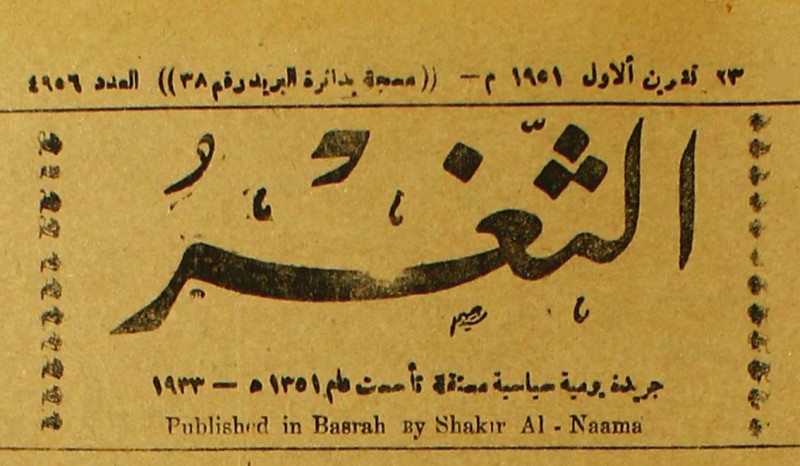 ٢٣ تشرين ألاول ١٩٥١ م — ((مسجلة بدائرة البريد رقم ٣٨)) العدد ٤٩٥٦
الثَّغْرُ
جريدة يومية سياسية مستقلة تأسست عام ١٣٥١ ه — ١٩٣٣
Published in Basrah By Shakir Al - Naama